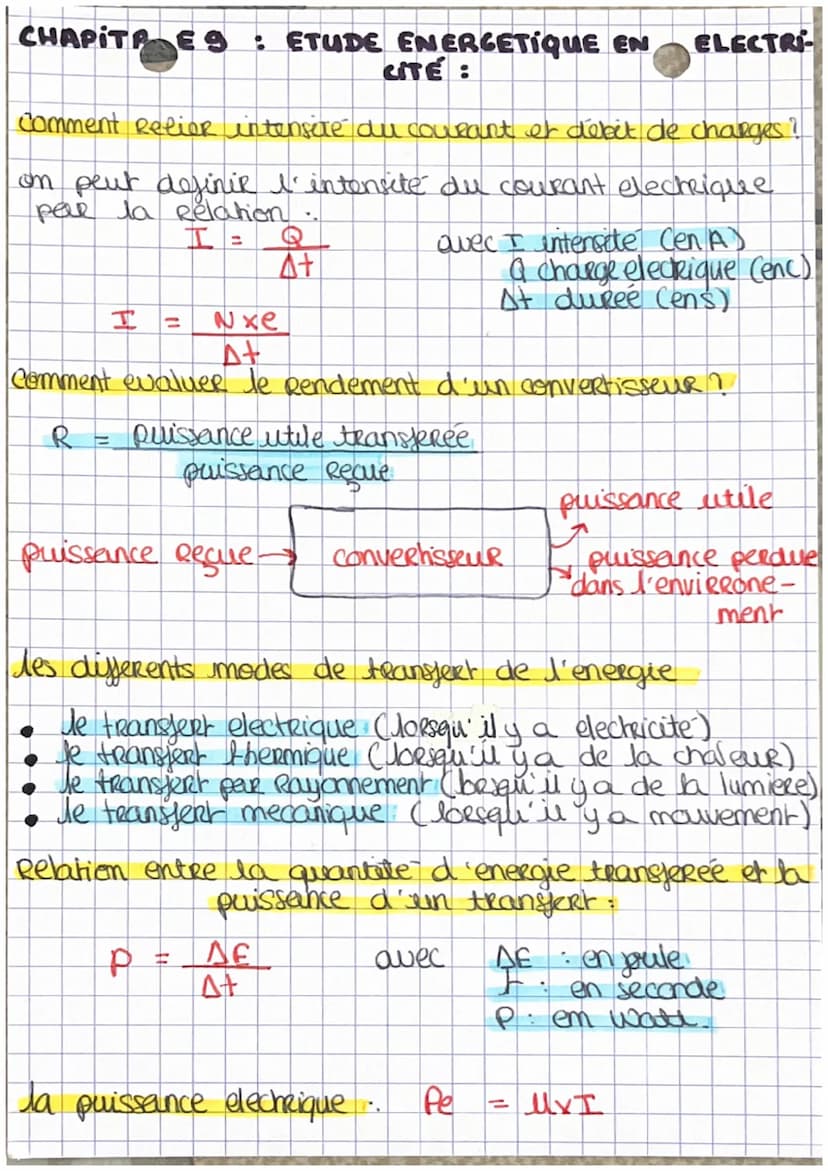 CHAPiTR E 9 : ETUDE ENERGETiQUE EN ELECTRi-
CiTÉ :
Comment relier intensité du courant et débit de charges ?
on peut definir l'intensité du courant electrique
par la relation :
I = Q / Δt
avec I intensité (en A)
Q charge electrique (en C)
Δt dureé (en s)
I = N x e / Δt
Comment evaluer le rendement d'un convertisseur ?
R = puissance utile transfereé / puissance reçue
puissance utile
puissance reçue → convertisseur
puissance perdue
dans l'environe-
ment
les differents modes de transfert de l'energie
• le transfert electrique (lorsqu'il y a electricité)
• le transfert thermique (lorsqu'il y a de la chaleur)
• le transfert par rayonnement (lorsqu'il y a de la lumiere)
• le transfert mecanique (lorsqu'il y a mouvement)
Relation entre la quantité d'energie transfereé et la
puissance d'un transfert :
P = ΔE / Δt
avec ΔE : en joule
t : en seconde
P : en Watt.
la puissance electrique : Pe = U x I